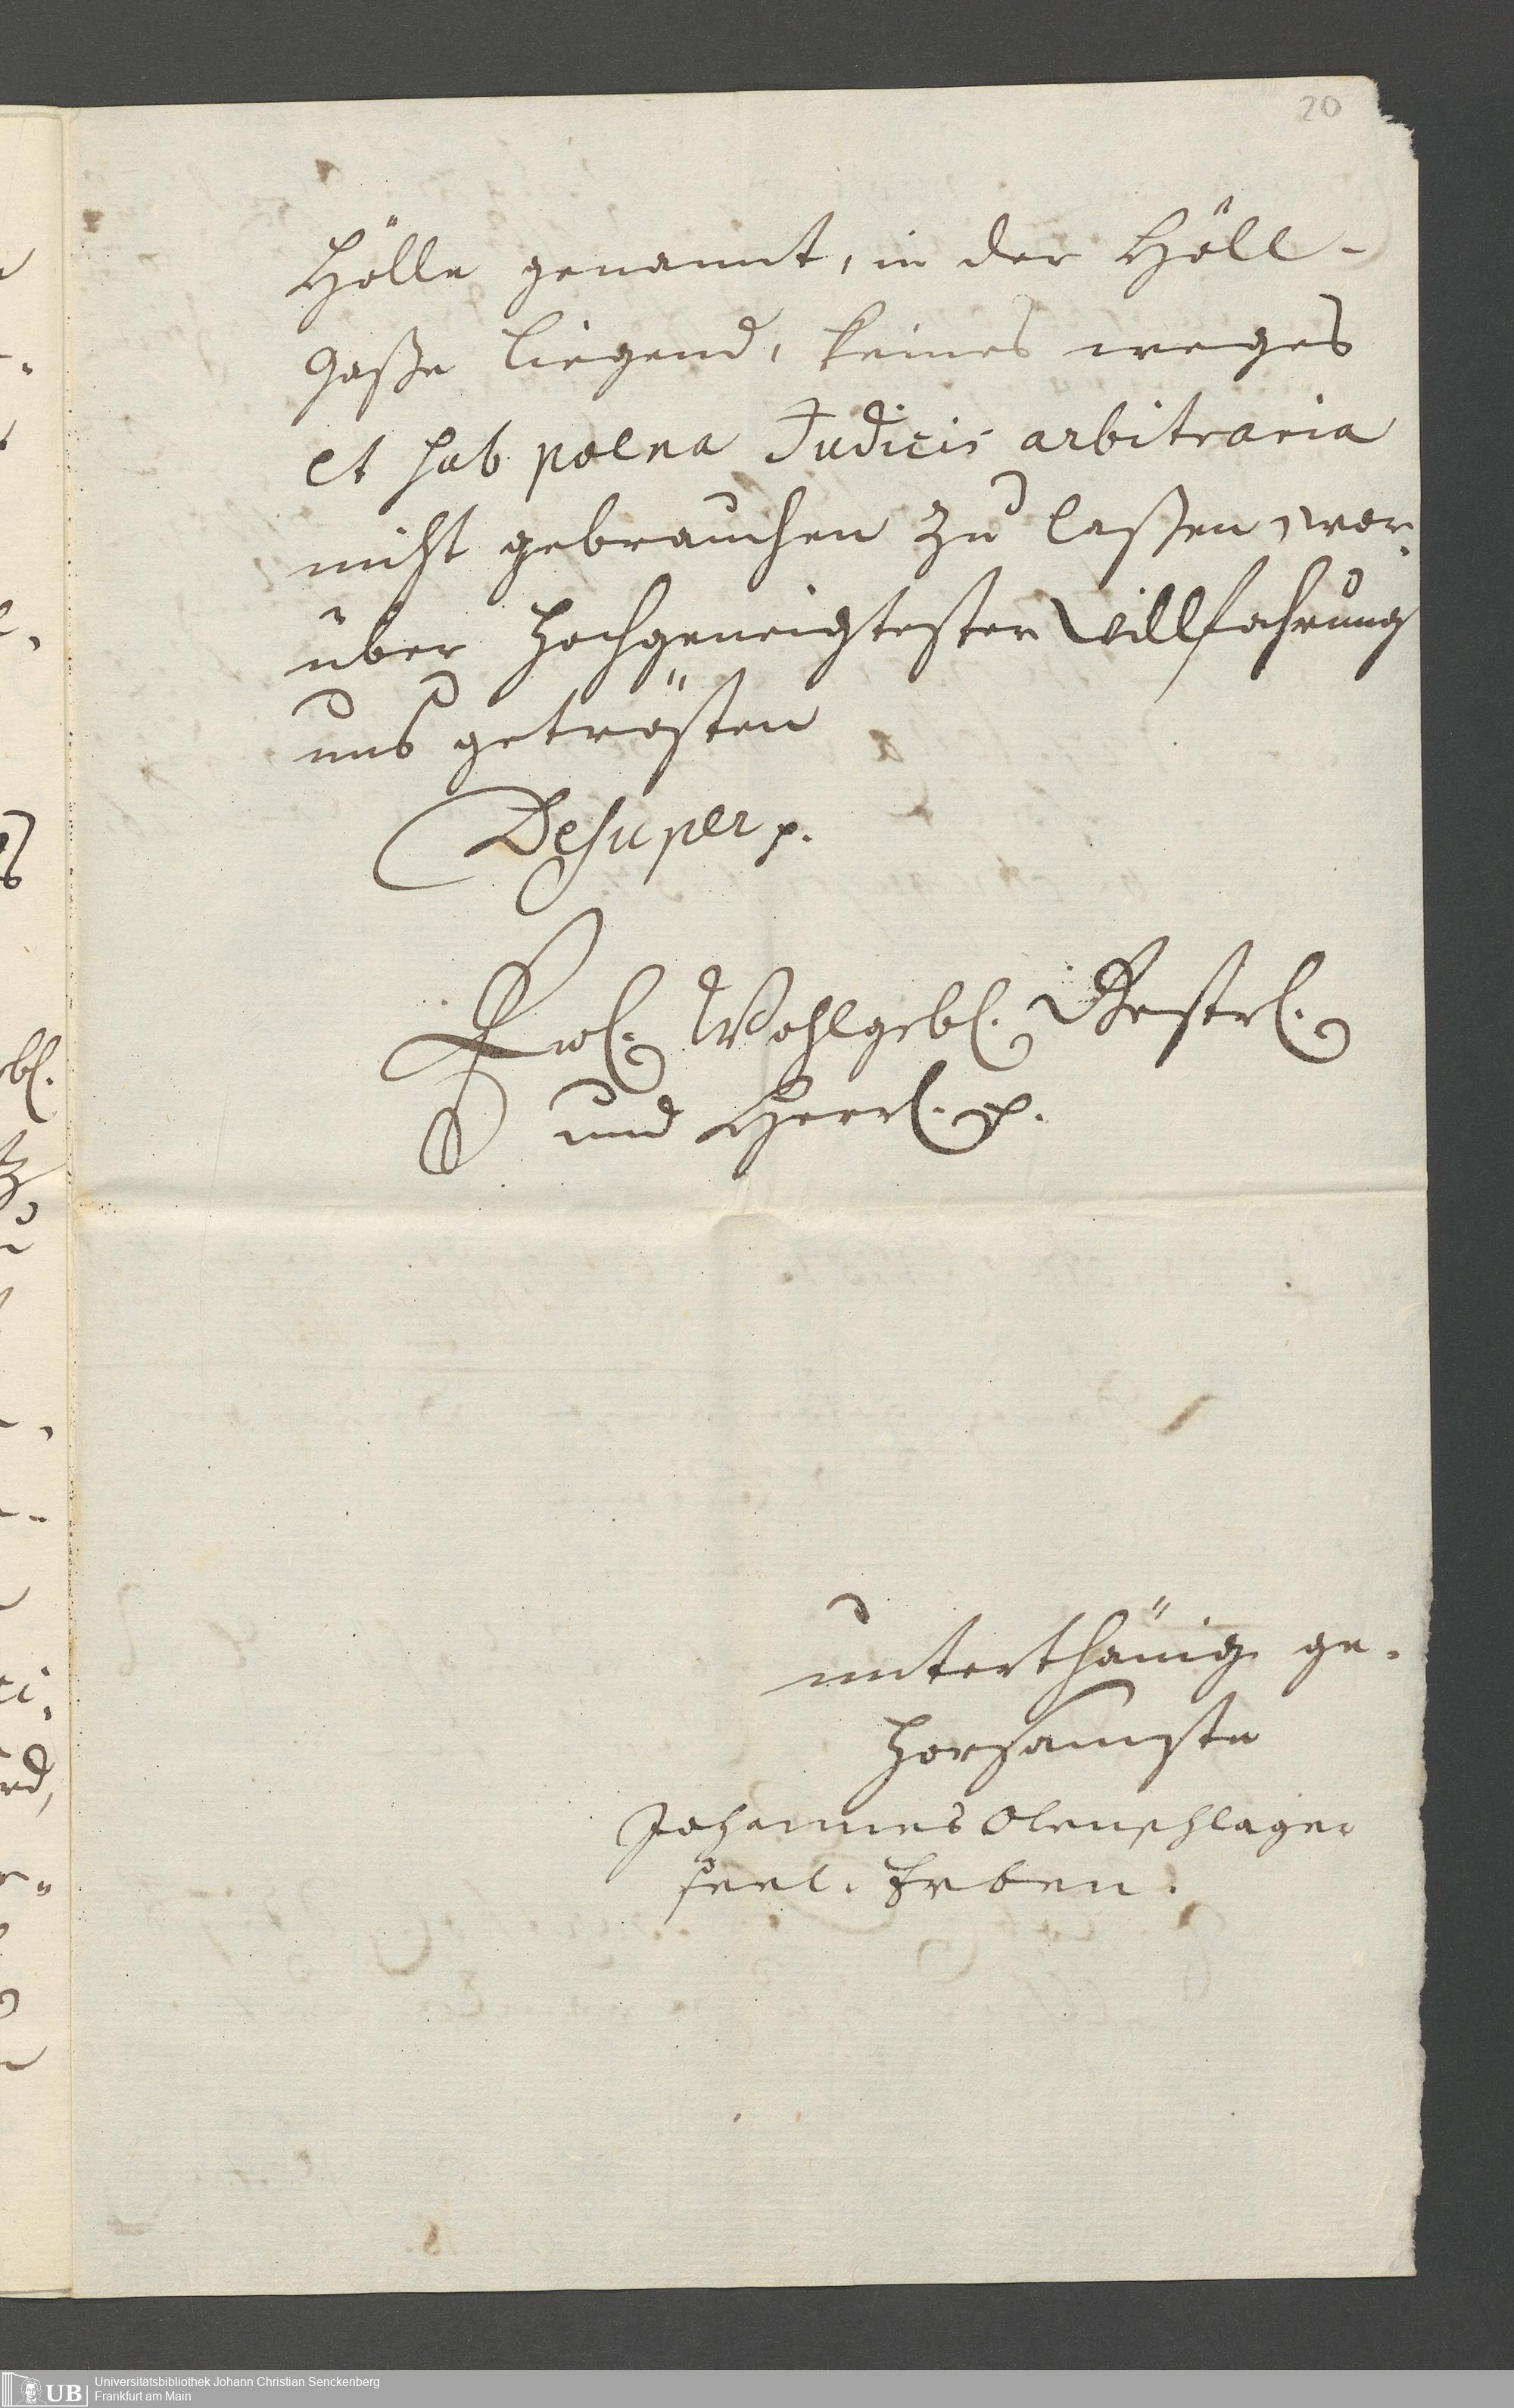 20
Hölle genannt, in der Höll-
gaße liegend, keines weges
et sub poena Judicis arbitraria
nicht gebrauchen zu laßen, wor-
über hochgeneigtester Willfahrung
uns getrösten
Desuper p.
Ewl. Wohlgebl. Gestrl.
und Herrl. p.
unterthänig ge-
horsamste
Johannes Olenschlager
seel. Erben.
UB Universitätsbibliothek Johann Christian Senckenberg
Frankfurt am Main